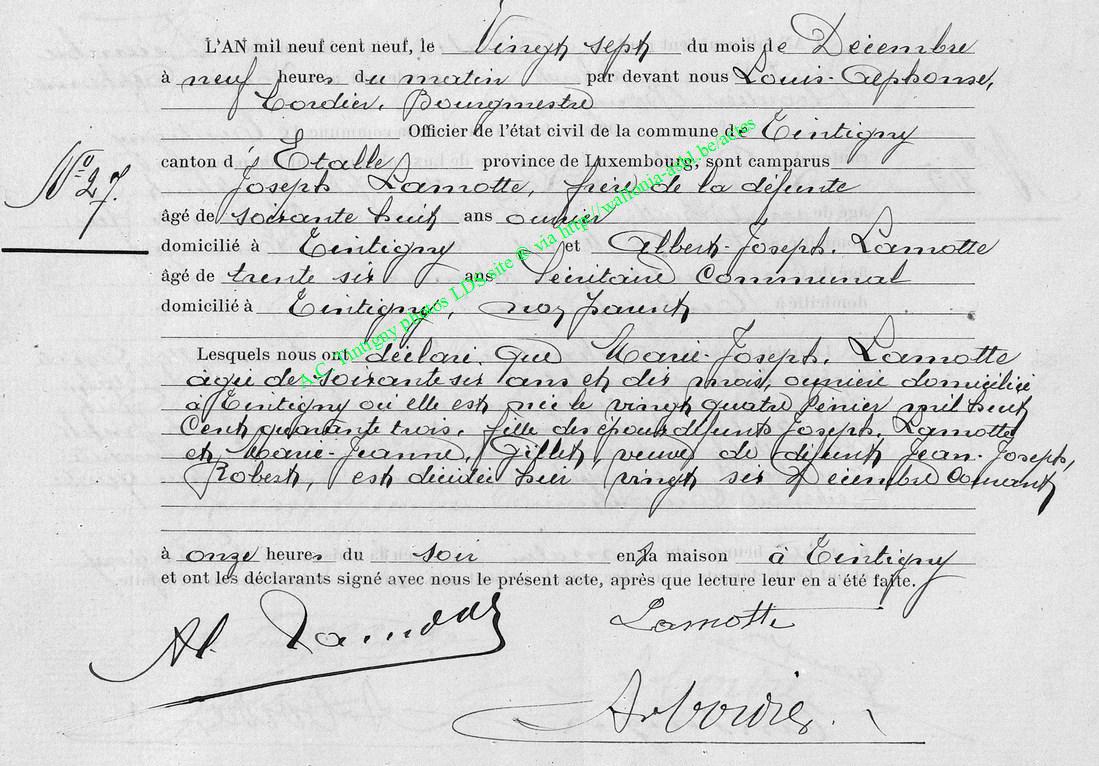 L'AN mil neuf cent neuf, le Vingt sept du mois de Décembre
à neuf heures du matin par devant nous Louis-Alphonse,
Cordier, Bourgmestre
Officier de l'état civil de la commune de Tintigny
canton d'Etalle province de Luxembourg, sont comparus
N° 27.
Joseph Lamotte, frère de la défunte
âgé de soixante huit ans ouvrier
domicilié à Tintigny et Albert-Joseph, Lamotte
âgé de trente six ans Secrétaire Communal
domicilié à Tintigny, non parent
Lesquels nous ont déclaré, que Marie-Joseph, Lamotte
agée de soixante six ans et dix mois, ouvrière domiciliée
à Tintigny où elle est née le vingt quatre Février mil huit
Cent quarante trois, fille des époux défunts Joseph, Lamotte
et Marie-Jeanne, Gillet, veuve de défunt Jean-Joseph,
Robert, est décédée hier vingt six Décembre Courant
à onze heures du soir en sa maison à Tintigny
et ont les déclarants signé avec nous le présent acte, après que lecture leur en a été faite.
Al. Lamotte
Lamotte
A.C. Tintigny photos LDS site @ via http://wallonia-asbl.be/actes